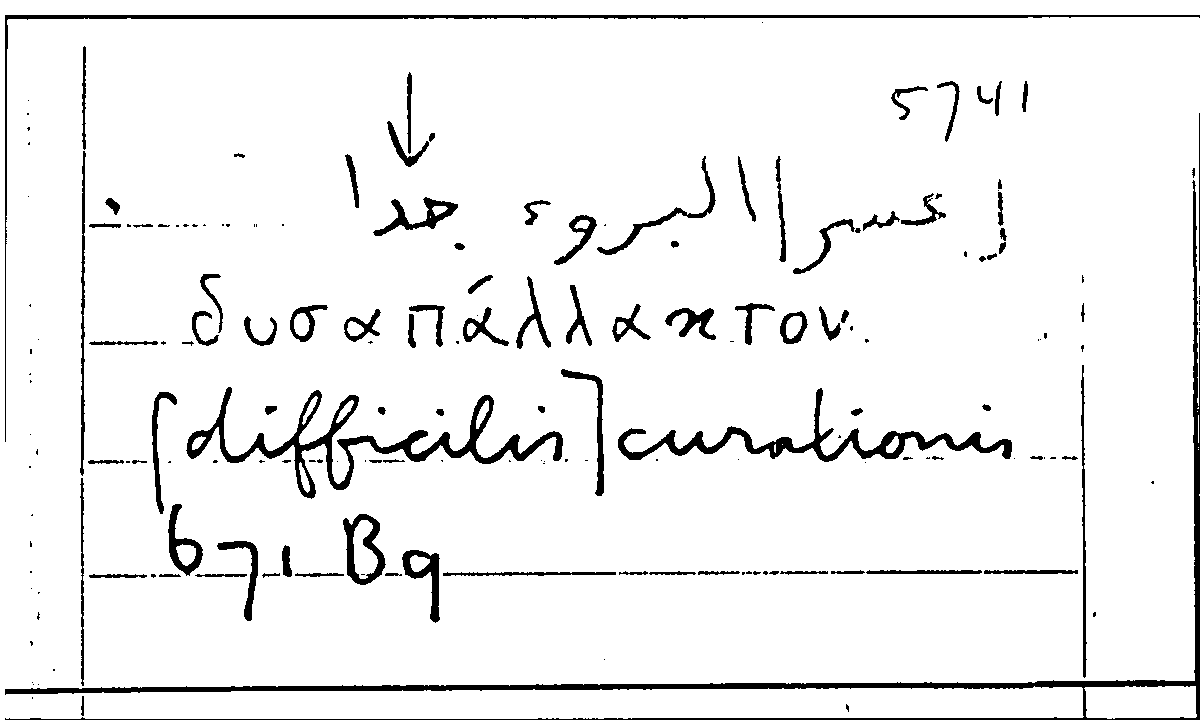 5741
[عسر] البروء جدا
δυσαπάλλακτον
[difficilis] curationis
671 B9